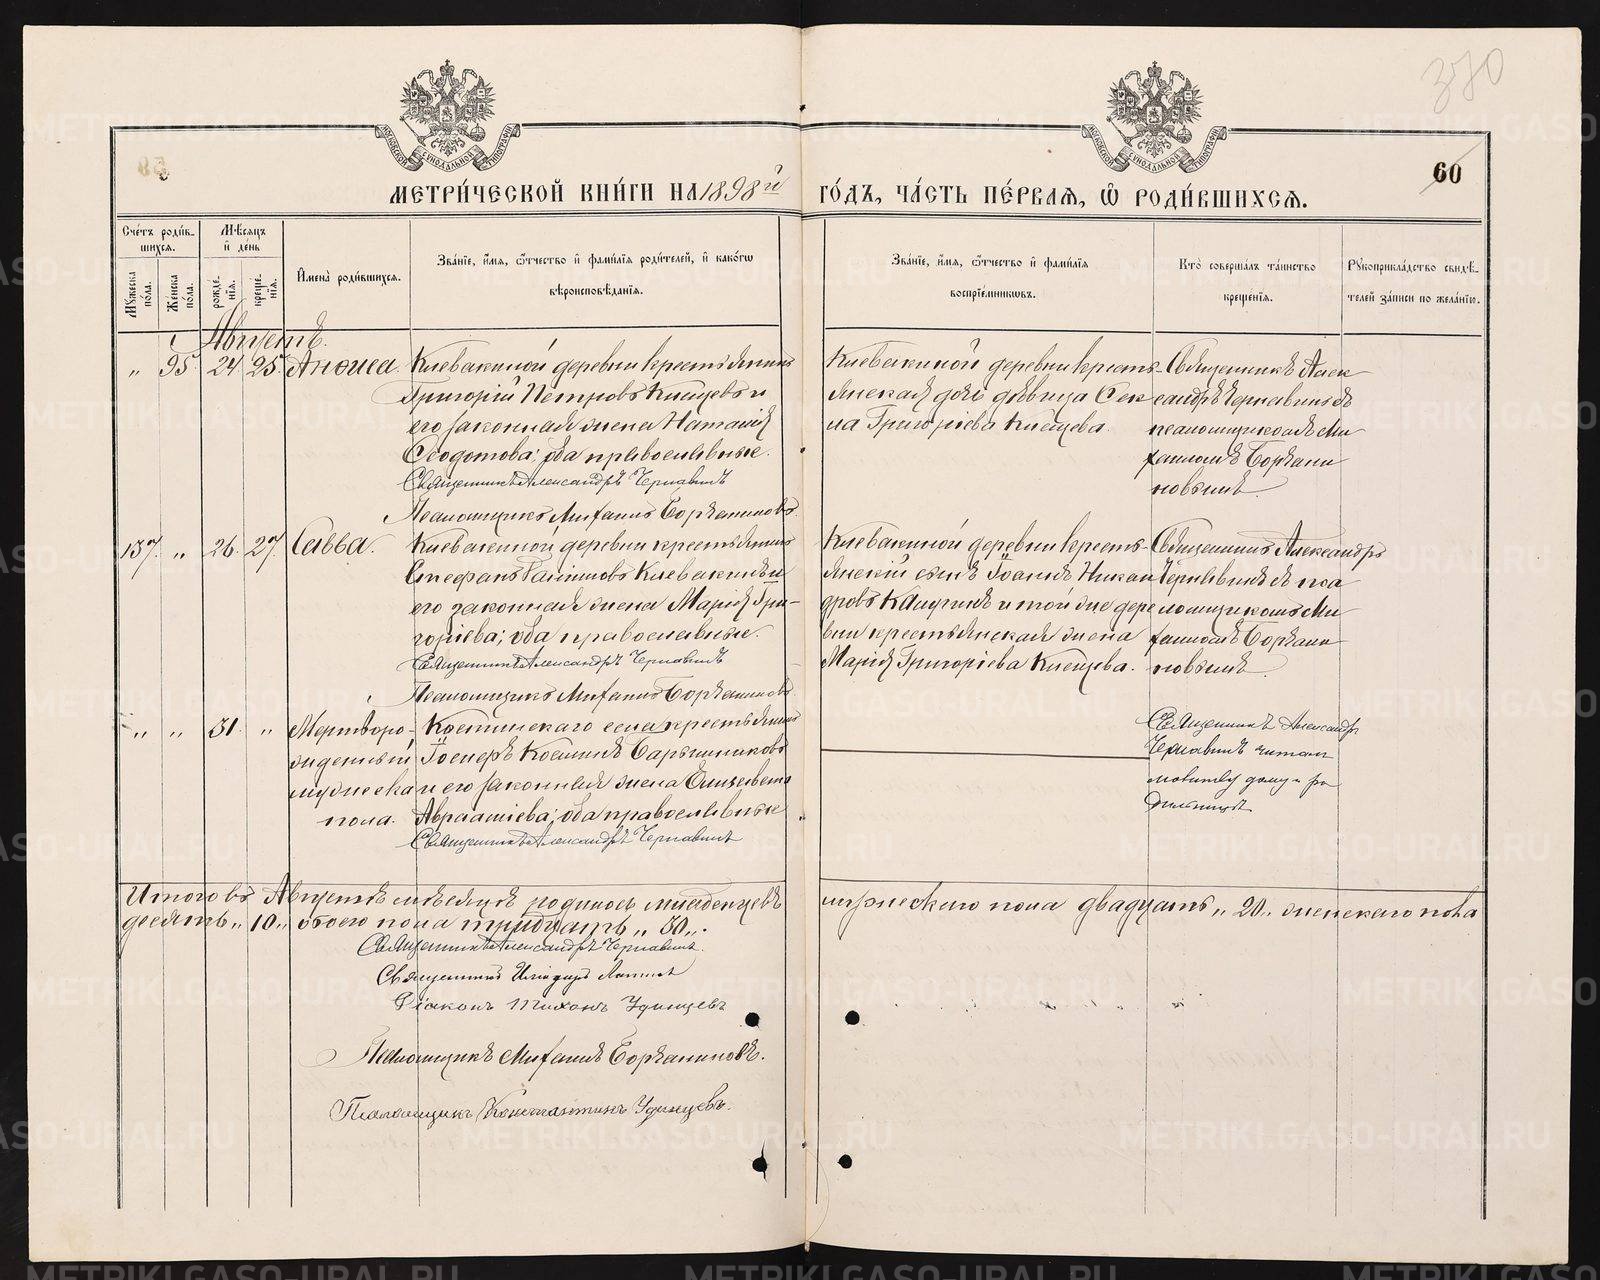 370
60
МЕТРИ́ЧЕСКОЙ КНИ́ГИ НА 1898й
ГО́ДЪ, ЧА́СТЬ ПЕ́РВАѦ, Ѡ҆ РОДИ́ВШИХСѦ.
Сче́тъ роди́в-
шихся.
Мѣ́сяцъ
и҆ де́нь
Мꙋ́жеска по́ла.
Же́нска по́ла.
рожде́-
нїя.
креще́-
нїя.
И҆мена̀ роди́вшихся.
Зва́нїе, и҆́мя, ѻ҆́тчество и҆ фами́лїя роди́телей, и҆ како́гѡ
вѣроисповѣ́данїя.
Зва́нїе, и҆́мя, ѻ҆́тчество и҆ фами́лїя
воспрїе́мникѡвъ.
Кто̀ соверша́лъ та́инство
креще́нїя.
Рꙋкоприкла́дство свидѣ́-
телей за́писи по жела́нїю.
Августъ.
„ 95. 24 25. Анѳиса.
Клевакиной деревни крестьянинъ
Григорій Петровъ Клещевъ и
его законная жена Наталія
Ѳеодотова; оба православные.
Священникъ Александръ Чернавинъ
Псаломщикъ Михаилъ Боржаниновъ
Клевакиной деревни кресть-
янская дочь девица Оек
ла Григорьева Клещева.
Священникъ Алек
сандръ Чернавинъ съ
псаломщикомъ Ми
хаиломъ Боржани
новымъ.
137. „ 26. 27. Савва.
Клевакиной деревни крестьянинъ
Стефанъ Клевакинъ и
его законная жена Марія Гри-
горіева; оба православные.
Священникъ Александръ Чернавинъ
Псаломщикъ Михаилъ Боржаниновъ
Клевакиной деревни кресть-
янскій сынъ Іоаннъ Никан
дровъ и той же дере
вни крестьянская жена
Марія Григоріева Клещева.
Священникъ Александръ
Чернавинъ съ пса
ломщикомъ Ми
хаиломъ Боржани
новымъ.
„ „ 31. „ Мертворо-
жденный
мужеска
пола.
Костинскаго села крестьянинъ
Іосифъ Косминъ Сарычниковъ
и его законная жена Елизавета
Авраамiева; оба православные
Священникъ Александръ Чернавинъ
Священникъ Александръ
Чернавинъ читалъ
молитву дому и ро
дильницѣ
Итого въ Августѣ мѣсяцѣ родилось младенцевъ
мужескаго пола двадцать „ 20 „ женскаго пола
десять „ 10 „ обоего пола тридцать „ 30 „.
Священникъ Александръ Чернавинъ.
Священникъ
Діаконъ Тихонъ Удинцевъ
Псаломщикъ Михаилъ Боржаниновъ.
Псаломщикъ Константинъ Удинцевъ.
METRIKI.GASO-URAL.RU